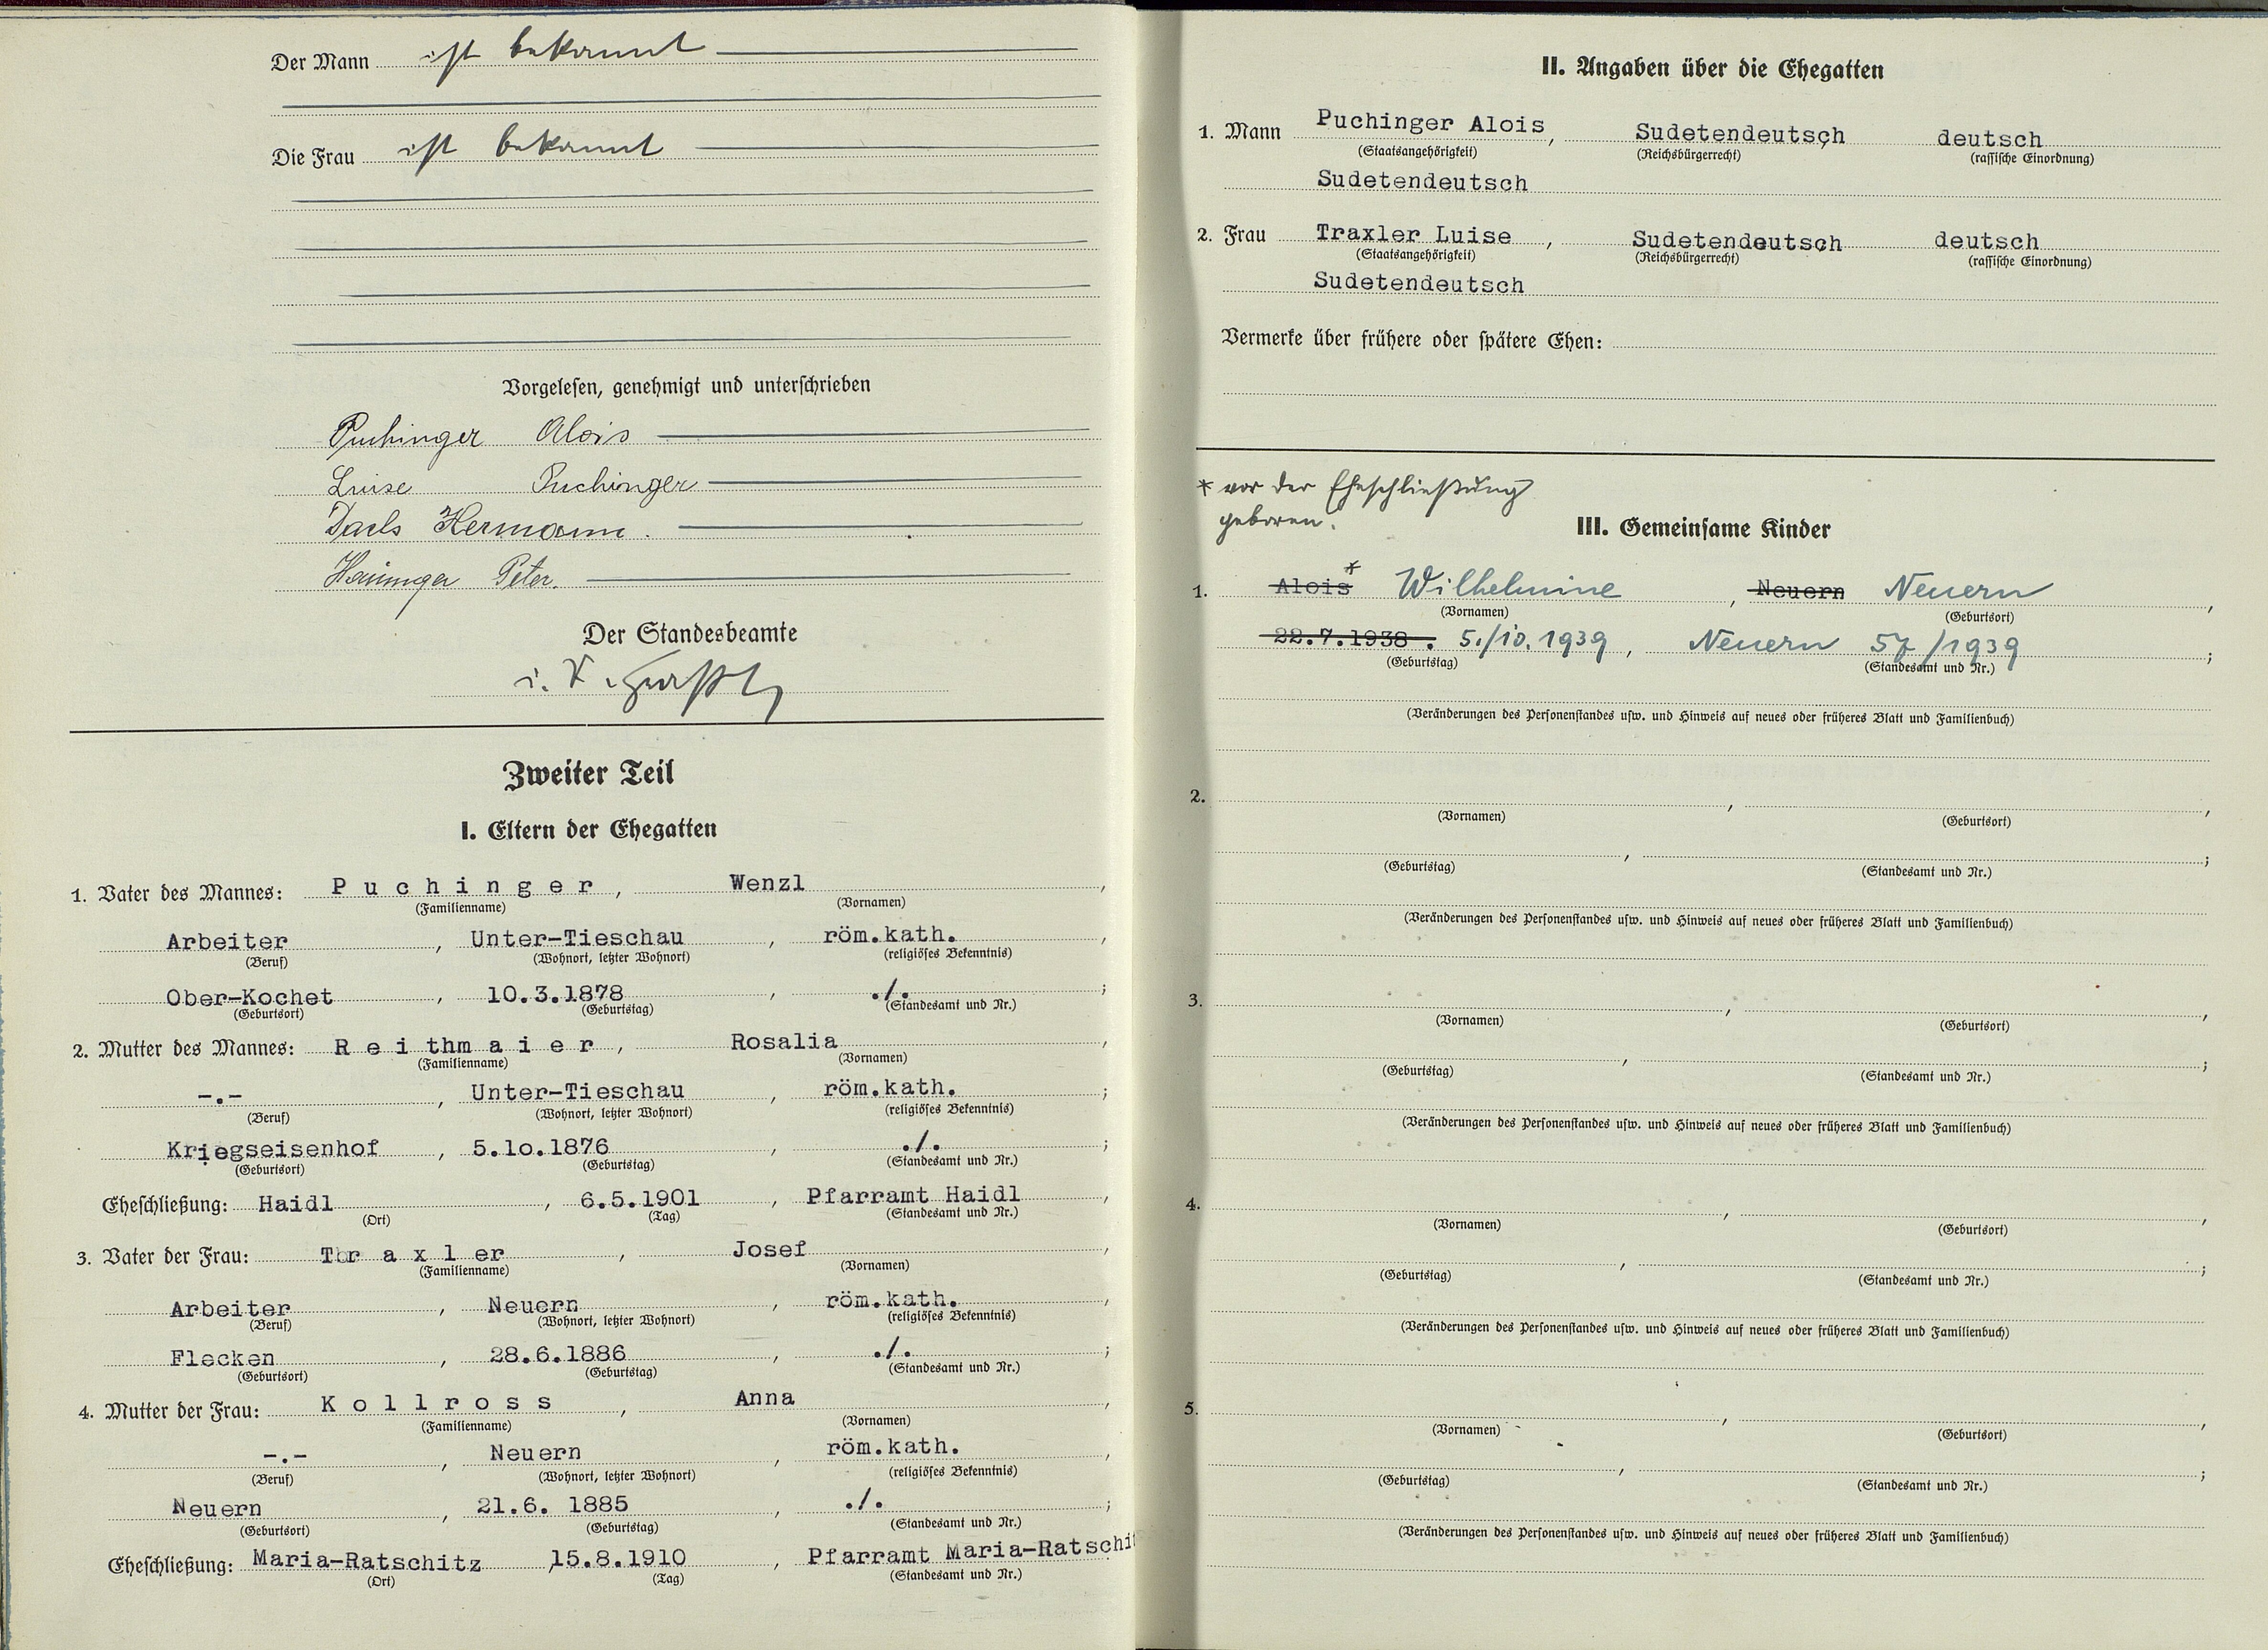 Der Mann ist bekannt
Die Frau ist bekannt
Vorgelesen, genehmigt und unterschrieben
Puchinger Alois
Luise Puchinger
Hermann.
Peter.
Der Standesbeamte
i. V.
Zweiter Teil
I. Eltern der Ehegatten
1. Vater des Mannes: P u c h i n g e r , Wenzl ,
(Familienname) (Vornamen)
Arbeiter , Unter-Tieschau , röm.kath. ,
(Beruf) (Wohnort, letzter Wohnort) (religiöses Bekenntnis)
Ober-Kochet , 10.3.1878 , ./. ;
(Geburtsort) (Geburtstag) (Standesamt und Nr.)
2. Mutter des Mannes: R e i thm a i e r , Rosalia ,
(Familienname) (Vornamen)
-.- , Unter-Tieschau , röm.kath. ;
(Beruf) (Wohnort, letzter Wohnort) (religiöses Bekenntnis)
Kriegseisenhof , 5.1o.1876 , ./. ;
(Geburtsort) (Geburtstag) (Standesamt und Nr.)
Eheschließung: Haidl , 6.5.1901 , Pfarramt Haidl ,
(Ort) (Tag) (Standesamt und Nr.)
3. Vater der Frau: T r a x l er , Josef ,
(Familienname) (Vornamen)
Arbeiter , Neuern , röm.kath. ,
(Beruf) (Wohnort, letzter Wohnort) (religiöses Bekenntnis)
Flecken , 28.6.1886 , ./. ;
(Geburtsort) (Geburtstag) (Standesamt und Nr.)
4. Mutter der Frau: K o l l r o s s , Anna ,
(Familienname) (Vornamen)
-.- , Neuern , röm.kath. ,
(Beruf) (Wohnort, letzter Wohnort) (religiöses Bekenntnis)
Neuern , 21.6. 1885 , ./. ;
(Geburtsort) (Geburtstag) (Standesamt und Nr.)
Eheschließung: Maria-Ratschitz , 15.8.1910 , Pfarramt Maria-Ratschi
(Ort) (Tag) (Standesamt und Nr.)
II. Angaben über die Ehegatten
1. Mann Puchinger Alois , Sudetendeutsch deutsch
(Staatsangehörigkeit) (Reichsbürgerrecht) (rassische Einordnung)
Sudetendeutsch
2. Frau Traxler Luise , Sudetendeutsch deutsch
(Staatsangehörigkeit) (Reichsbürgerrecht) (rassische Einordnung)
Sudetendeutsch
Vermerke über frühere oder spätere Ehen:
* vor der Eheschließung
geboren.
III. Gemeinsame Kinder
1. Alois * Wilhelmine , Neuern Neuern ,
(Vornamen) (Geburtsort)
22.7.1938 . 5./10. 1939 , Neuern 57/1939 ;
(Geburtstag) (Standesamt und Nr.)
(Veränderungen des Personenstandes usw. und Hinweis auf neues oder früheres Blatt und Familienbuch)
2. , ,
(Vornamen) (Geburtsort)
, ;
(Geburtstag) (Standesamt und Nr.)
(Veränderungen des Personenstandes usw. und Hinweis auf neues oder früheres Blatt und Familienbuch)
3. , ,
(Vornamen) (Geburtsort)
, ;
(Geburtstag) (Standesamt und Nr.)
(Veränderungen des Personenstandes usw. und Hinweis auf neues oder früheres Blatt und Familienbuch)
4. , ,
(Vornamen) (Geburtsort)
, ;
(Geburtstag) (Standesamt und Nr.)
(Veränderungen des Personenstandes usw. und Hinweis auf neues oder früheres Blatt und Familienbuch)
5. , ,
(Vornamen) (Geburtsort)
, ;
(Geburtstag) (Standesamt und Nr.)
(Veränderungen des Personenstandes usw. und Hinweis auf neues oder früheres Blatt und Familienbuch)